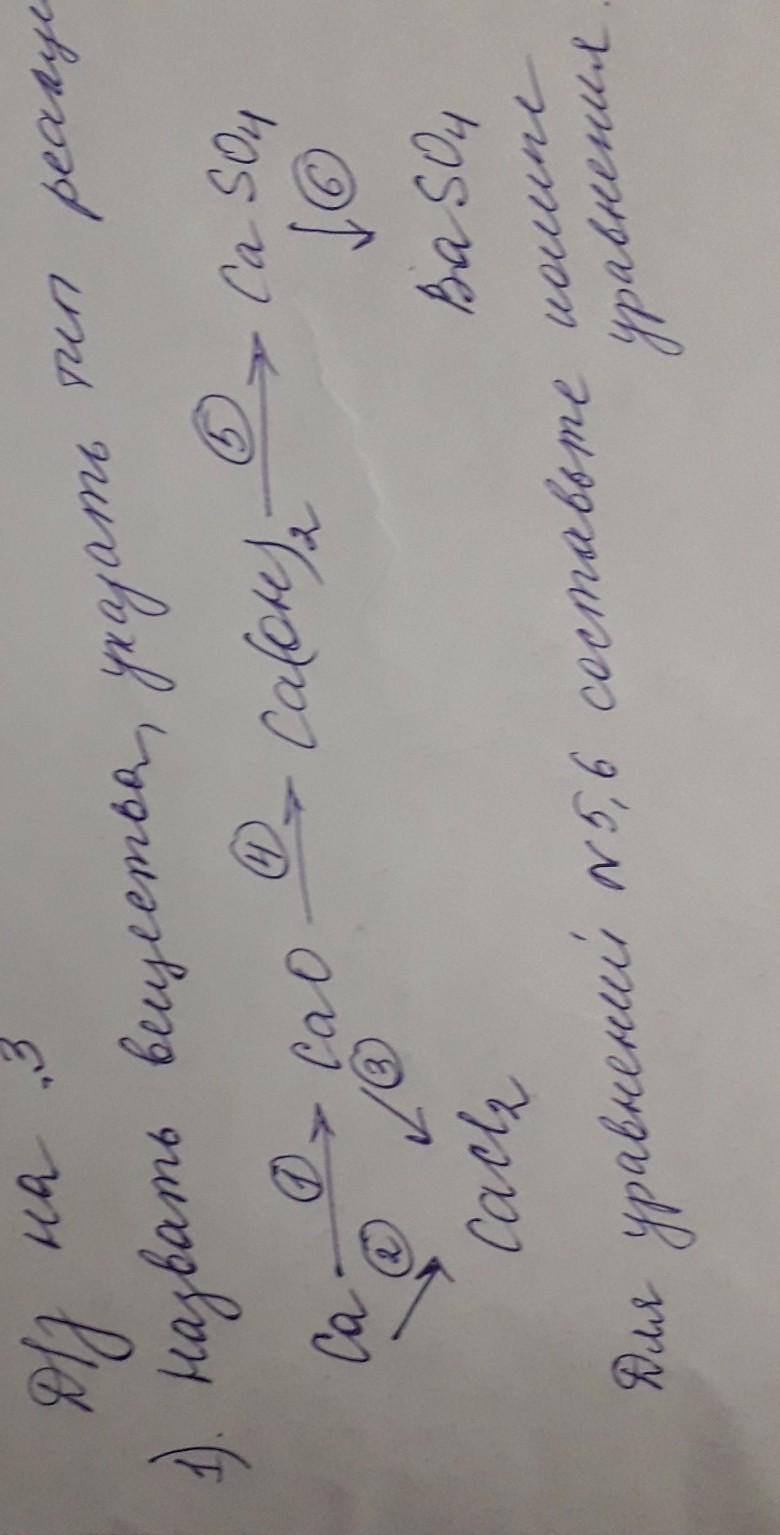 Д/з на "3
1). Назвать вещества, указать тип реакци
Ca ① → CaO ④ → Ca(OH)₂ ⑤ → CaSO₄
② ↗ ③ ↙ ⑥ ↓
CaCl₂ BaSO₄
Для уравнений N5,6 составьте ионные
уравнения.